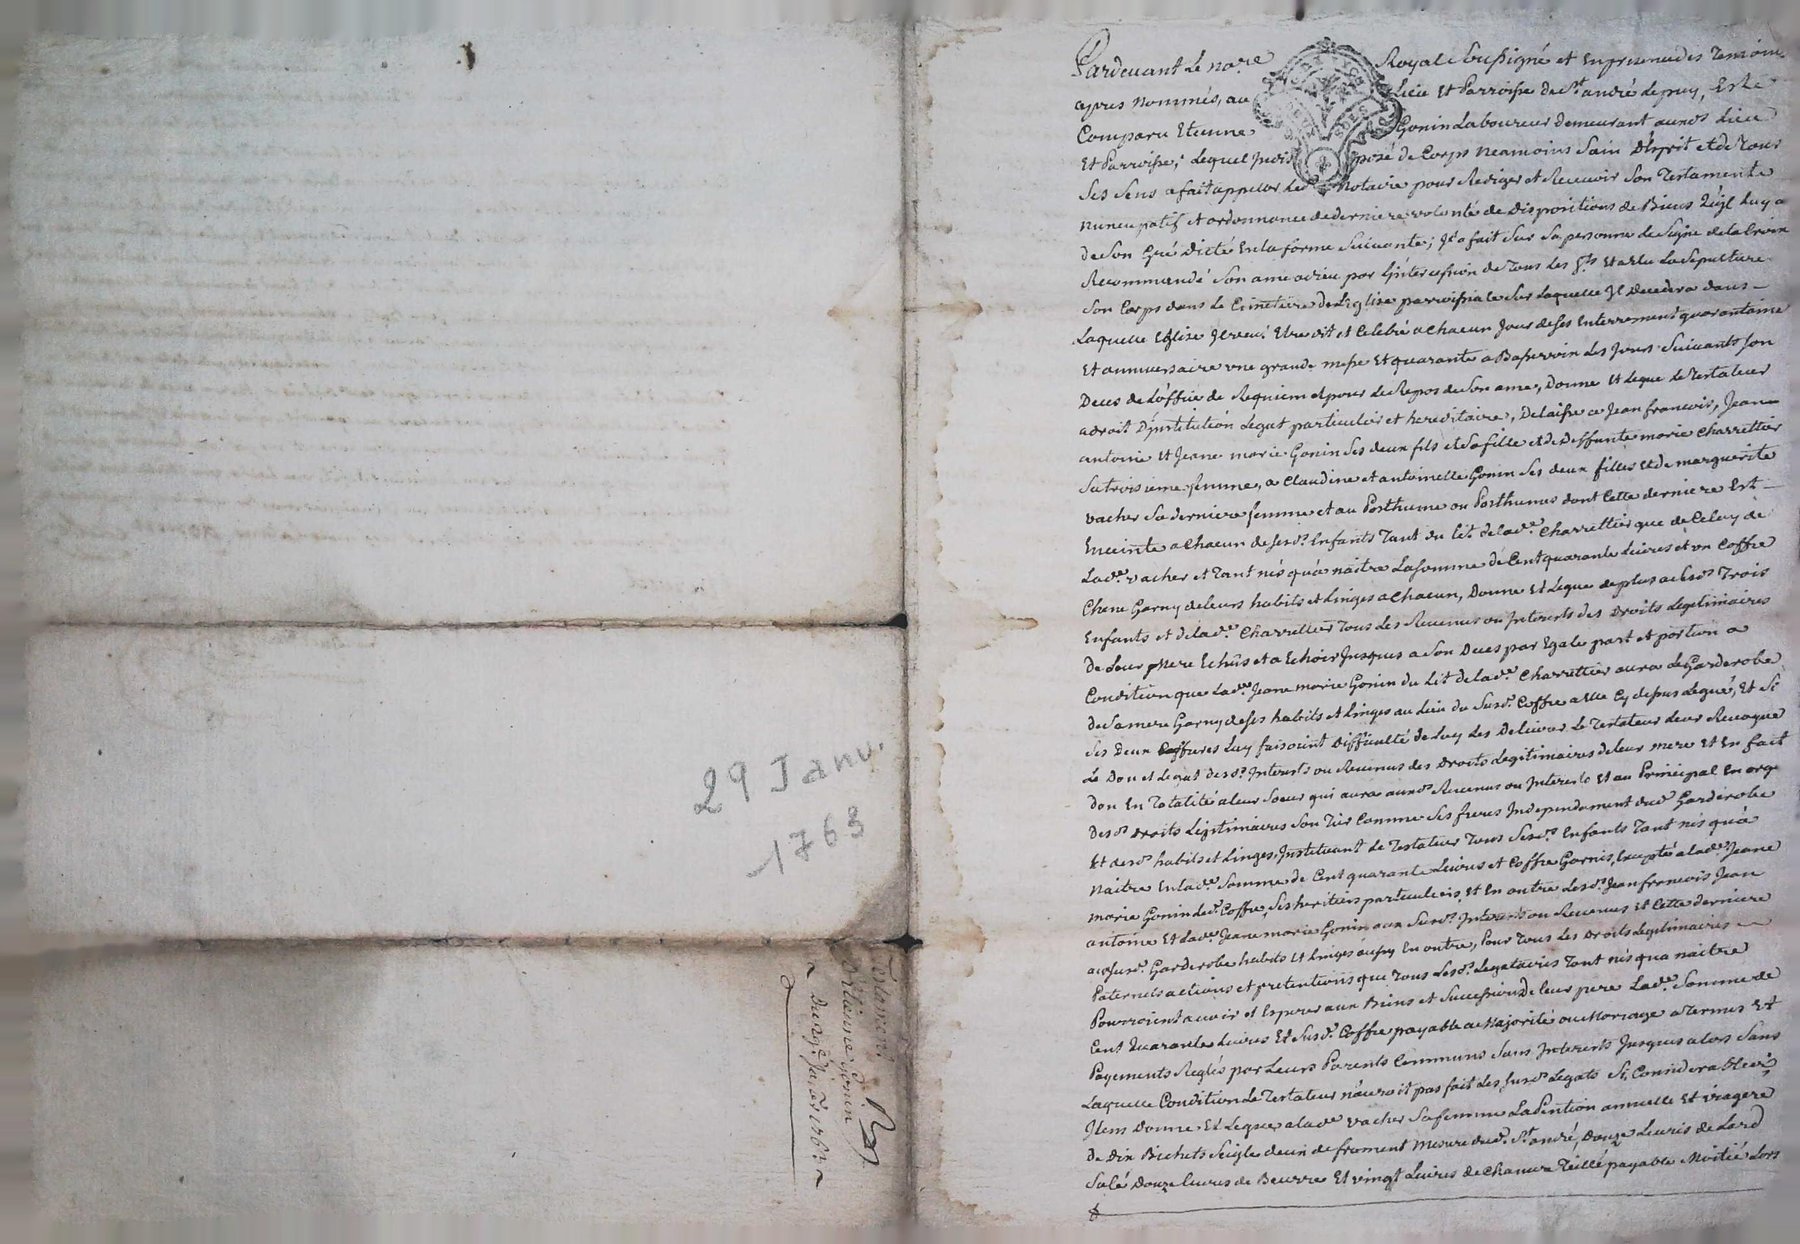 29 Janv.
1763
Testament
D'Etienne Gonin
Pardevant Le no.re Royal Soussigné et En presence des Temoins
apres Nommés, au lieu Et Parroisse de S.t andré le puy, Est
Comparu Etienne Gonin Laboureur demeurant auxd. lieu
Et Parroisse; Lequel posé de Corps neamoins Sain D'Esprit et de Tous
Ses Sens a fait appeller Led. Notaire pour Rediger et Recevoir Son Testament
nuncupatif et ordonnance de derniere volonté de Dispositions de Biens qu'il Luy a
de Son Gré dicté En la forme Suivante; Il a fait Sur Sa personne le Signe de la Croix
Recommandé Son ame a dieu par L'intercession de Tous Les S.ts Et Elu La Sepulture
Son Corps dans Le Cimetiere de L'Eglise parroissiale Sur Laquelle Il Decedera dans
Laquelle Eglise Il veut Etre dit et Celebré a Chacun Jour de Ses Enterrement quarantaine
Et anniversaire une grande messe Et quarante a Basse voix Les Jours Suivants Son
Deces de L'office de Requiem et pour Le Repos de Son ame, Donne Et Legue Le Testateur
a droit D'institution Legat particulier et hereditaire, Delaisse a Jean francois, Jean
antoine Et Jeane marie Gonin Ses deux fils et Sa fille et de Deffunte marie Charrettier
Sa troisieme femme, a Claudine et antoinette Gonin Ses deux filles Et de marguerite
vacher Sa derniere femme et au Posthume ou Posthumes dont Cette derniere Est
Enceinte a Chacun de Sesd. Enfants Tant du lit de lad.e Charrettier que de Celuy de
Lad.e vacher et Tant nés qu'a naitre La Somme de Cent quarante Livres et un Coffre
Chene Garny de leurs habits et Linges a Chacun, Donne Et Legue de plus a Sesd. Trois
Enfants et de lad.e Charrettier Tous Les Revenus ou Interets des Droits Legitimaires
de Leur Mere Echus et a Echoir Jusques a Son Deces par Egale part et portion a
Condition que Lad.e Jeane marie Gonin du Lit de lad.e Charrettier aura Le Garderobe
de Sa mere Garny de Ses habits et Linges au Lieu du Susd. Coffre a Elle Cy dessus Legué, Et Si
Ses Deux freres Luy faisoint Difficulté de Luy Les Delivrer Le Testateur Leur Revoque
Le Don et Legat desd. Interets ou Revenus des Droits Legitimaires de leur mere Et En fait
don En Totalité a leur Soeur qui aura auxd. Revenus ou Interets Et au Principal
Desd. Droits Legitimaires Son Tiers Comme Ses freres Independament dud. Garderobe
Et desd. habits et Linges, Instituant Le Testateur Tous Sesd. Enfants Tant nés qu'à
Naitre En lad.e Somme de Cent quarante Livres et Coffre Garnis, Excepté a lad.e Jeane
marie Gonin led. Coffre, Ses heritiers particuliers, Et En outre Lesd. Jean francois Jean
antoine Et Lad.e Jeane marie Gonin aux Susd. Interets ou Revenus Et Cette derniere
au Susd. Garderobe habits Et Linges aussy En outre, Pour Tous Les Droits Legitimaires
Paternels actions et pretentions que Tous Lesd. Legataires Tant nés qu'a naitre
Pourroient avoir et Esperer aux Biens et Succession de leur pere Lad.e Somme de
Cent Quarante Livres Et Susd. Coffre payable a Majorité ou Mariage a Termes Et
Payements Reglés par Leurs Parents Communs Sans Interets Jusques a lors Sans
Laquelle Condition Le Testateur n'auroit pas fait Les Susd. Legats Si Considerables,
Item Donne Et Legue a lad.e vacher Sa femme La Pention annuelle Et viagere
De Dix Bichets Seigle deux de froment Mesure dud. S.t andré, Douze Livres de Lard
Salé Douze Livres de Beurre Et vingt Livres de Chanvre Teillé payable Moitié Lors